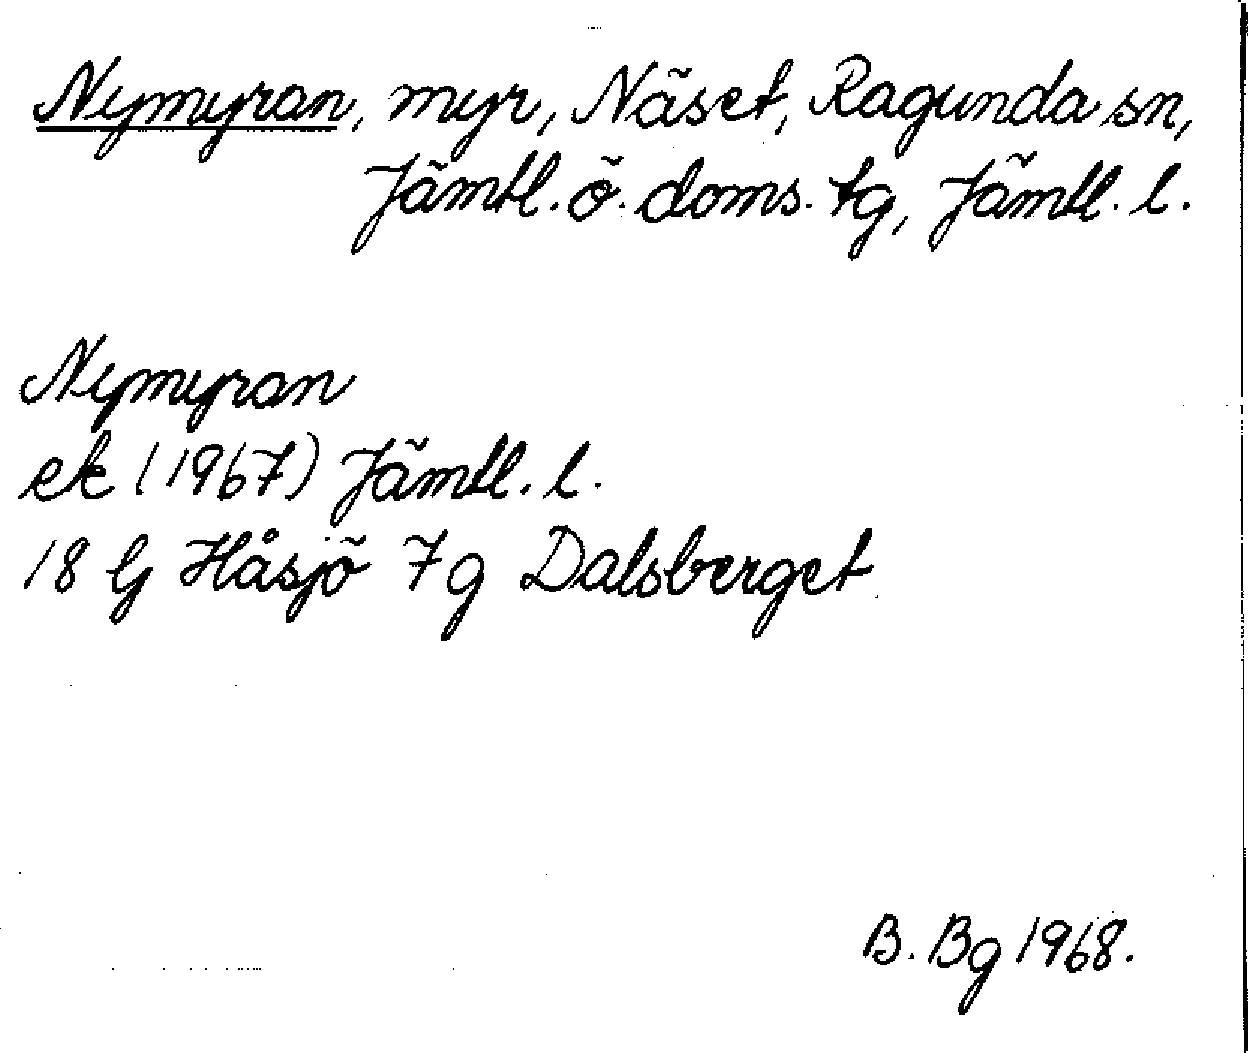 Nymyran, myr, Näset, Ragunda sn,
Jämtl. ö. doms. tg, Jämtl. l.
Nymyran
ek (1967) Jämtl. l.
18 G Håsjö 7g Dalsberget
B. Bg 1968.